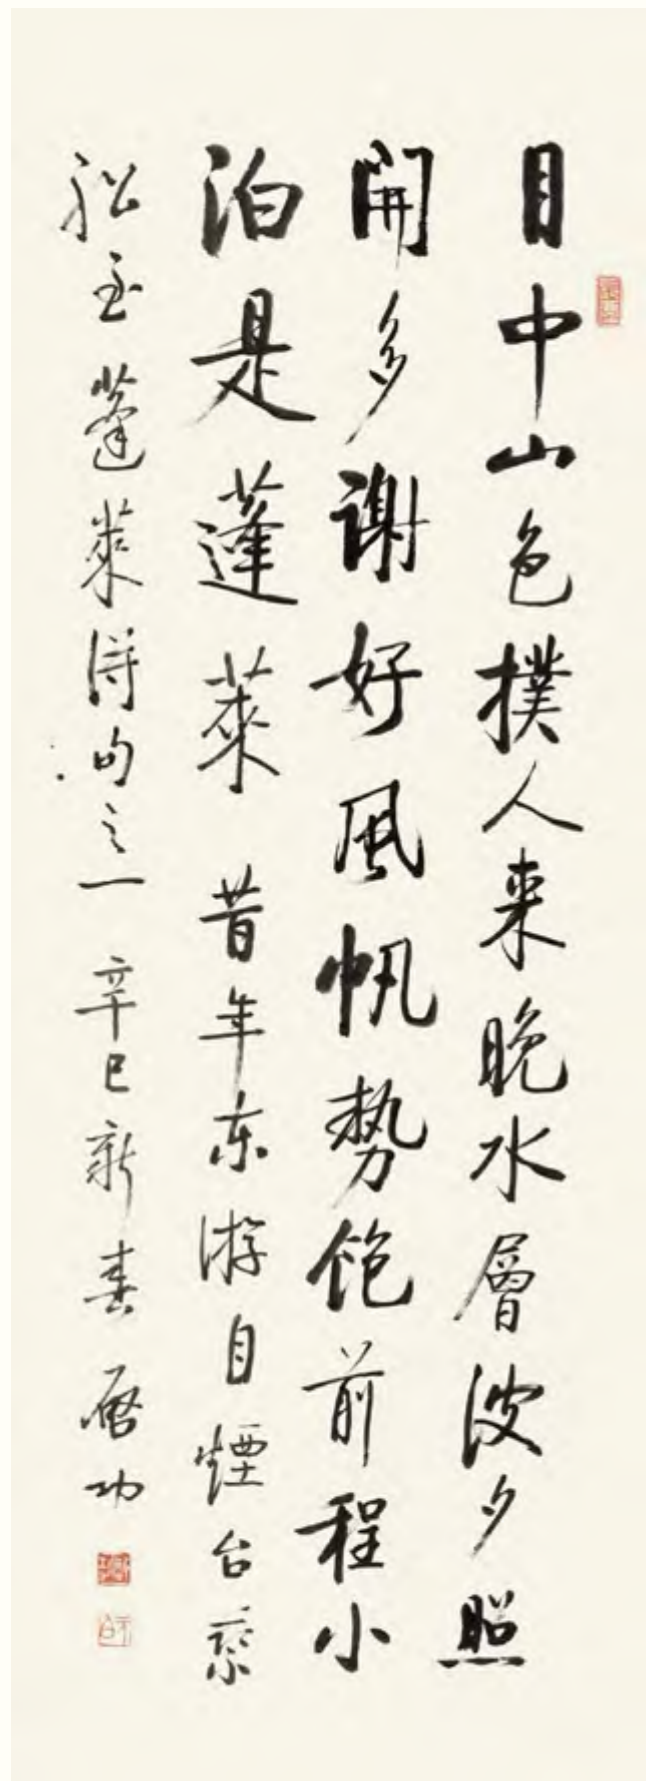 目中山色撲人来晚水層波夕照
開多謝好風帆勢飽前程小
泊是蓬萊 昔年东游自煙台乘
舩至蓬萊得句之一 辛巳新春 啓功